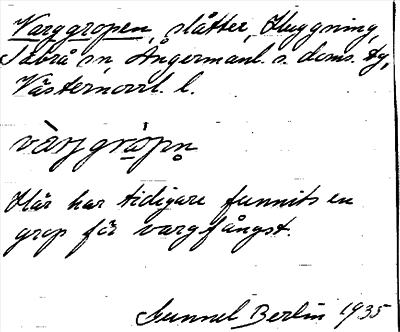 Varggropen, slåtter, Kluggning,
Såbrå sn, Ångermanl. s. doms. tg,
Västernorrl. l.
vàrjgrópn
Här har tidigare funnits en
grop för vargfångst.
Gunnel Berlin 1935